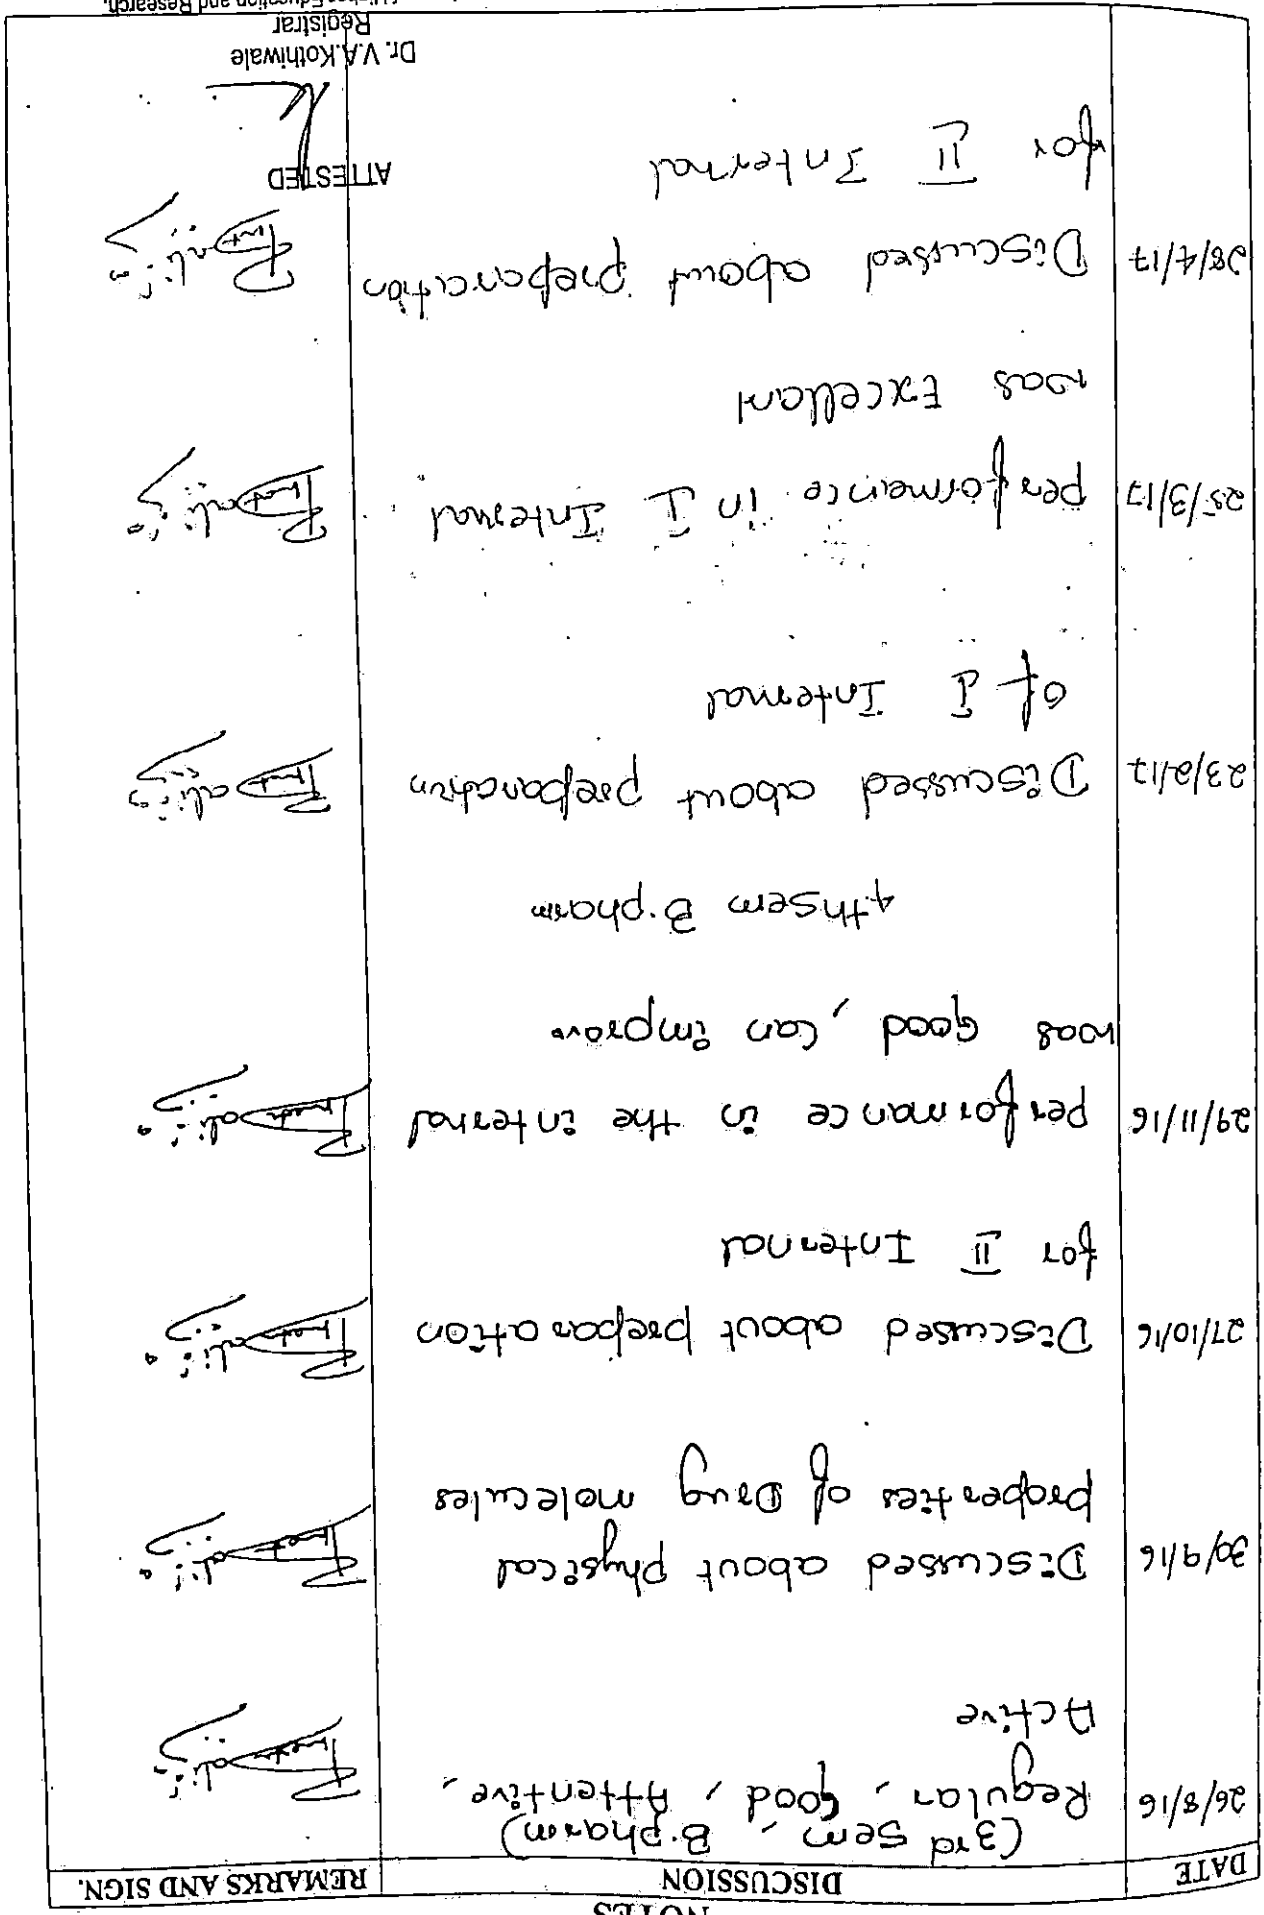 NOTES
DATE DISCUSSION REMARKS AND SIGN.
(3rd Sem, B.pharm)
26/8/16 Regular, Good, Attentive,
Active
30/9/16 Discussed about physical
properties of Drug molecules
27/10/16 Discussed about preparation
for II Internal
29/11/16 Performance in the internal
was Good, can improve
4th Sem B.pharm
23/2/17 Discussed about preparation
of I Internal
25/3/17 Performance in I Internal
was Excellant
28/4/17 Discussed about preparation
for II Internal
ATTESTED
Dr. V.A.Kothiwale
Registrar
Higher Education and Research,